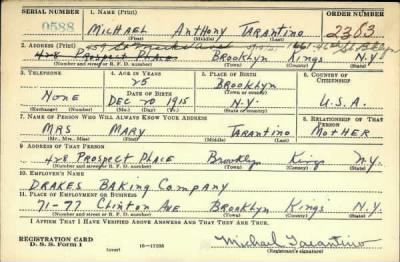 SERIAL NUMBER 1. NAME (Print) ORDER NUMBER
0588 MICHAEL ANTHONY TARANTINO 2363
(First) (Middle) (Last)
2. ADDRESS (Print)
428 PROSPECT PLACE BROOKLYN KINGS N.Y.
(Number and street or R. F. D. number) (Town) (County) (State)
3. TELEPHONE 4. AGE IN YEARS 5. PLACE OF BIRTH 6. COUNTRY OF CITIZENSHIP
25 BROOKLYN
NONE DATE OF BIRTH (Town or county)
DEC 20 1915 N.Y. U.S.A.
(Exchange) (Number) (Mo.) (Day) (Yr.) (State or country)
7. NAME OF PERSON WHO WILL ALWAYS KNOW YOUR ADDRESS 8. RELATIONSHIP OF THAT PERSON
MRS MARY TARANTINO MOTHER
(Mr., Mrs., Miss) (First) (Middle) (Last)
9. ADDRESS OF THAT PERSON
428 PROSPECT PLACE BROOKLYN KINGS N.Y.
(Number and street or R. F. D. number) (Town) (County) (State)
10. EMPLOYER'S NAME
DRAKES BAKING COMPANY
11. PLACE OF EMPLOYMENT OR BUSINESS
71-77 CLINTON AVE BROOKLYN KINGS N.Y.
(Number and street or R. F. D. number) (Town) (County) (State)
I AFFIRM THAT I HAVE VERIFIED ABOVE ANSWERS AND THAT THEY ARE TRUE.
REGISTRATION CARD
D. S. S. FORM 1 (over) Michael Tarantino
(Registrant's signature)